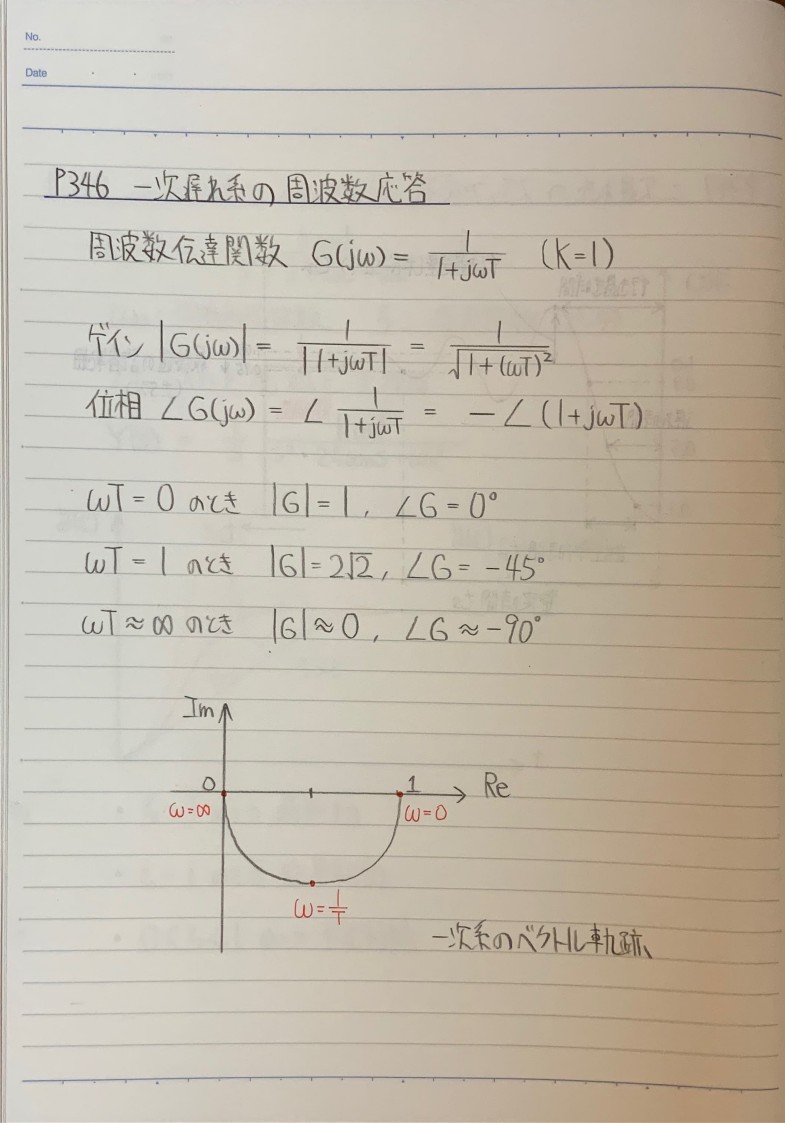 No.
Date
P346 一次遅れ系の周波数応答
周波数伝達関数 G(jω) = 1/(1+jωT) (K=1)
ゲイン |G(jω)| = 1/|1+jωT| = 1/√(1+(ωT)²)
位相 ∠G(jω) = ∠ 1/(1+jωT) = -∠(1+jωT)
ωT = 0 のとき |G| = 1, ∠G = 0°
ωT = 1 のとき |G| = 2√2, ∠G = -45°
ωT ≈ ∞ のとき |G| ≈ 0, ∠G ≈ -90°
Im
0 1 Re
ω=∞ ω=0
ω=1/T
一次系のベクトル軌跡、